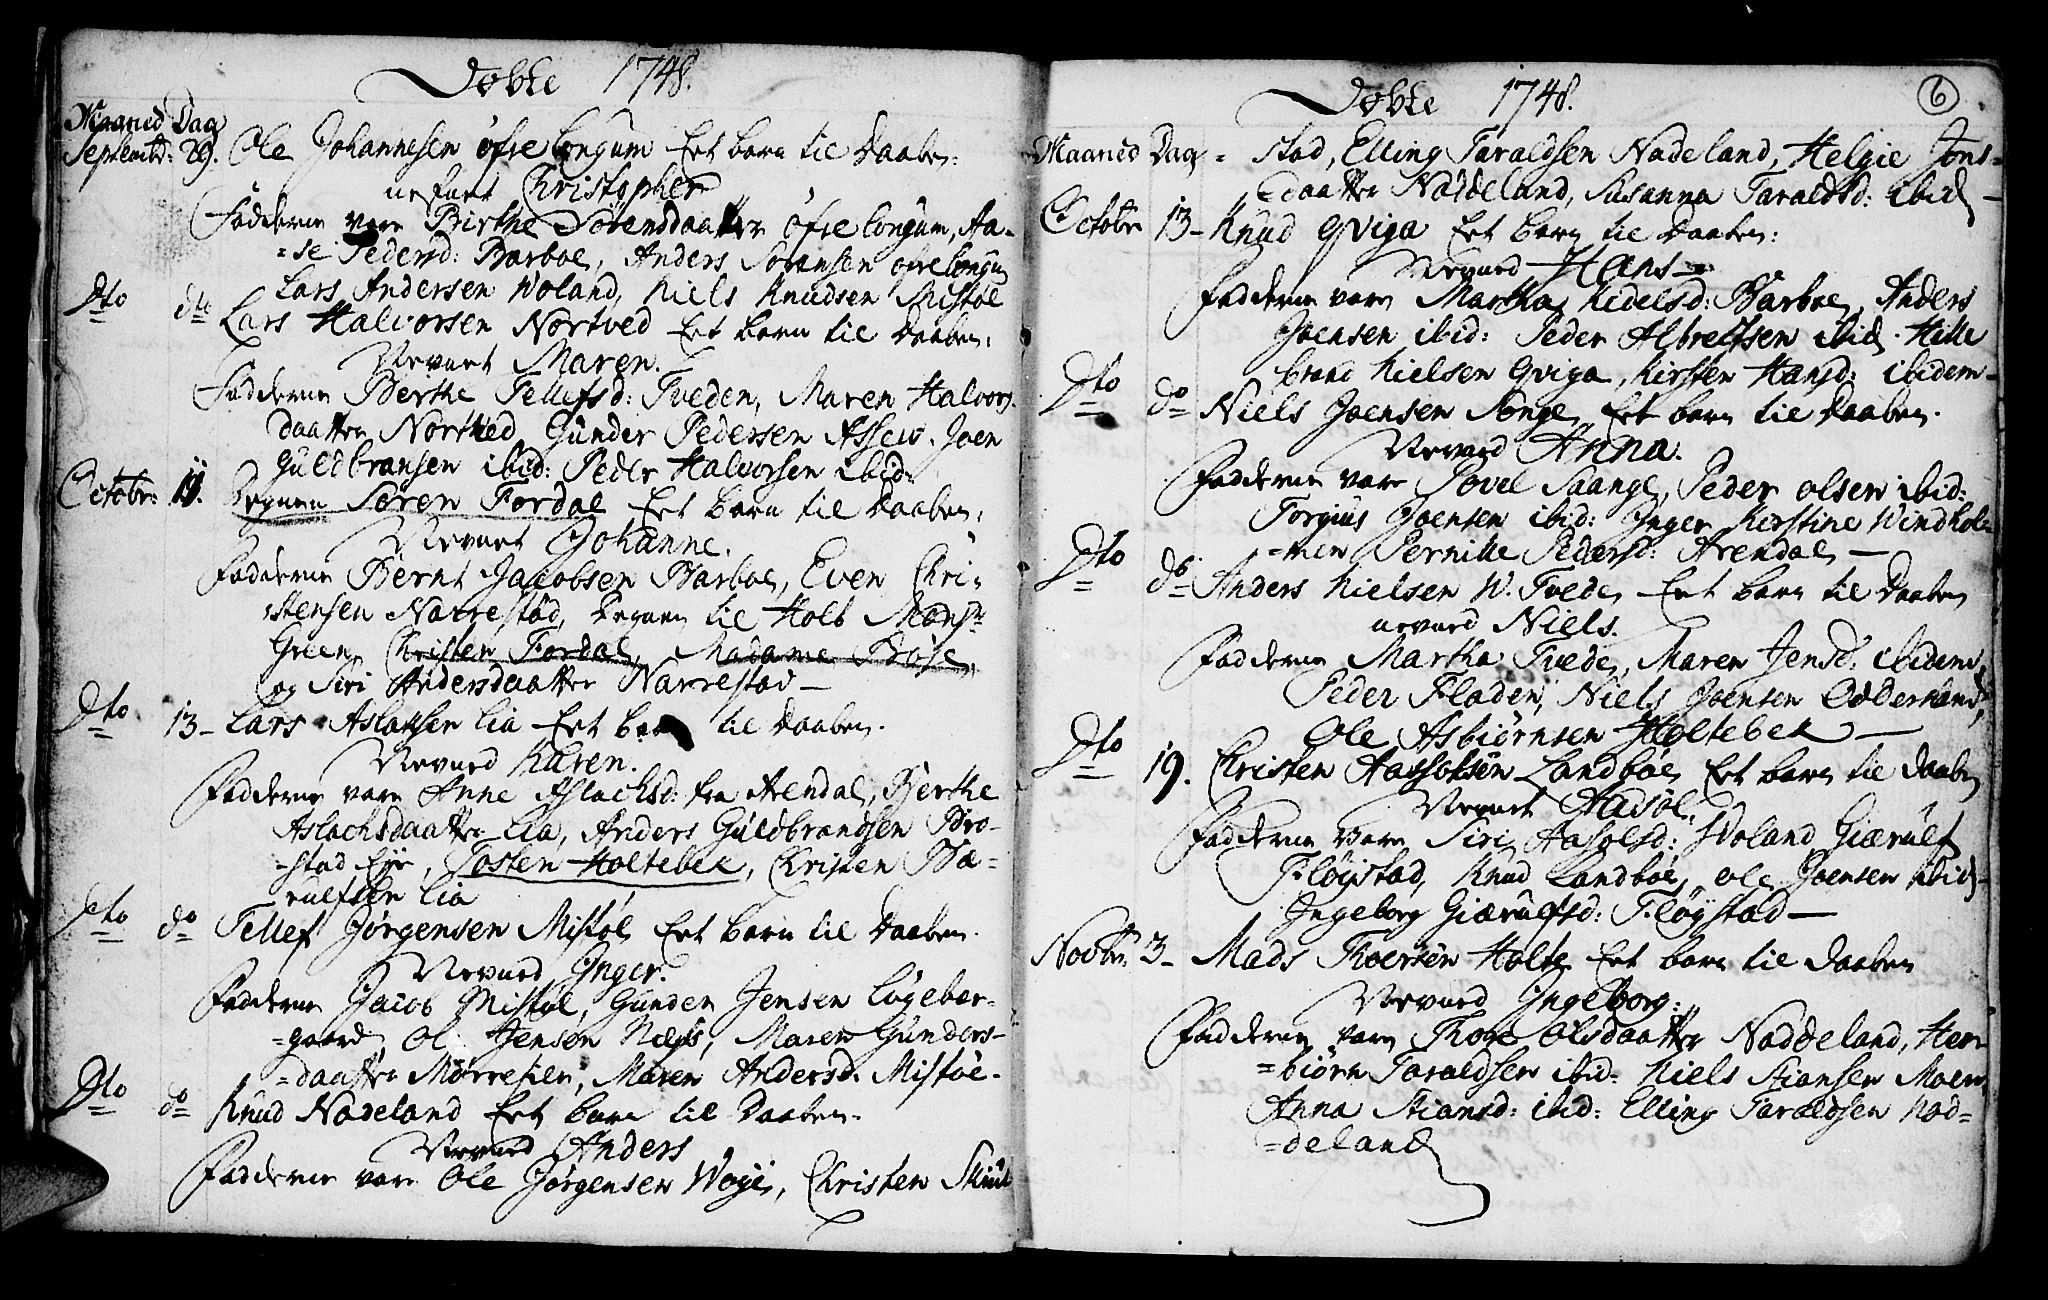 Døbte 1748.
Maaned Dag
Septembr: 29. Ole Johannesen øfre Longum Eet barn til Daaben:
nefnt Christopher
Fadderne vare Birthe Sørensdaatter øfre Longum, Aa-
=se Pedersd: Barboe, Anders Sørensen øfre Longum
Lars Andersen Woland, Niels Knudsen Mistøl
Dto do Lars Halvorsen Nørtved Eet barn til Daaben:
Nevnt Maren.
Fadderne Berthe Tellefsd: Tveden, Maren Halvors-
daatter Nørtved Gunder Pedersen Assew. Joen
Guldbransen ibid: Peder Halvorsen ibid:
Octobr: 11. Degnen Søren Fordal Eet barn til Daaben:
Nevnt Johanne.
Fadderne Bernt Jacobsen Barboe, Even Chri-
-stensen Narrestad, Degnen til Holt Monsr
Green Christen Fordal, Madame Bøse,
og Siri Andersdaatter Narrestad -
Dto 13- Lars Aslaksen Lia Eet barn til Daaben.
Nevned Karen.
Fadderne vare Anne Aslachsd: fra Arendal, Berthe
Aslachsdaatter Lia, Anders Guldbrandsen Bro-
-stad Eye, Tosten Holtebek, Christen Bæ-
rulfsen Lia
Dto do Tellef Jørgensen Mistøl Eet barn til Daaben.
Nevned Inger.
Fadderne Jacob Mistøl, Gunder Jensen Løgebær-
=gaard Ole Jensen Næss, Maren Gunders-
=daatter Mørrefier, Maren Andersd. Mistøl.
Dto do Knud Nadeland Eet barn til Daaben.
Nevned Anders
Fadderne vare Ole Jørgensen Woye, Christen Skiul
Døbte 1748.
6
Maaned Dag = stad, Elling Taraldsen Nadeland, Helgie Jons-
daatter Naddeland, Susanna Taraldsd: ibid -
Octobr 13- Knud Qviga Eet barn til Daaben:
Nevned Hans -
Fadderne vare Martha Nielsd: Barboe, Anders
Joensen ibid: Peder Albrettsen ibid. Hille
brand Nielsen Qviga, Kirsten Hansd: ibidem -
Dto do Niels Joensen Songe Eet barn til Daaben.
Nevned Anna.
Fadderne vare Povel Saange, Peder Olsen ibid:
Torgius Joensen ibid: Inger Kirstine Windhol-
=men Pernille Pedersd: Arendal -
Dto do Anders Nielsen W. Tvede Eet barn til Daaben
nevned Niels.
Fadderne Martha Tvede, Maren Jensd: ibidem,
Peder Fladen, Niels Joensen Odderhavn,
Ole Asbiørnsen Holtebek -
Dto 19. Christen Aassolsen Landbøe Eet barn til Daaben
Nevnet Aasol.
Fadderne vare Siri Aasolsd: Woland Giærulf
Fløystad, Knud Landbøe, Ole Joensen ibid -
Ingeborg Giærulfsd: Fløystad -
Novbr: 3- Mads Thoersen Holte Eet barn til Daaben
Nevned Ingeborg:
Fadderne vare Thore Olsdaatter Naddeland, Her-
=biørn Taraldsen ibid: Niels Stiansen Moen
Anna Stiansd: ibid: Elling Taraldsen Nad=
=deland